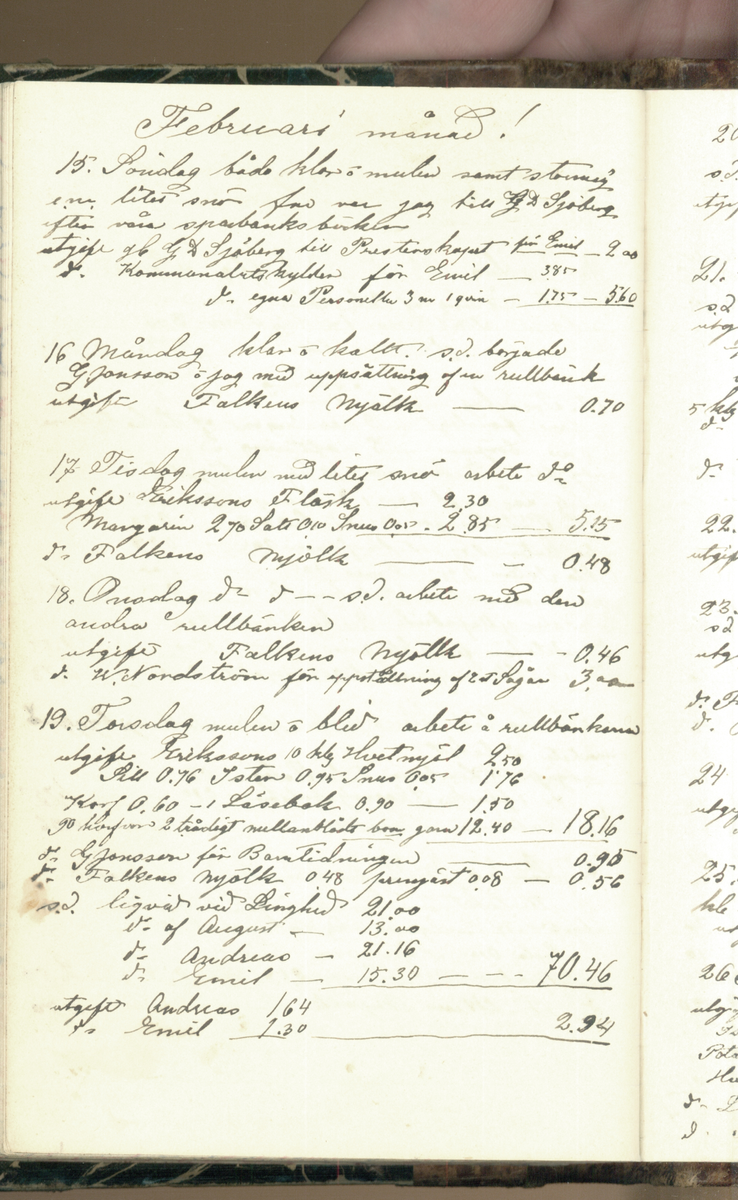 Februari månad!
15. Söndag både klar o mulen samt stormig
en liten snö fm var jag till G D Sjöberg
efter våra sparbanksböcker
utgift gb G D Sjöberg till Presterskapet för Emil – 2 00
d:o Kommunalutskylder för Emil – 3.85
d:o egna Personella 3 m 1 qvin – 1.75 – 5.60
16 Måndag klar o kallt. s.d. började
G Jonsson o jag med uppsättning af en rullbänk
utgift Falkens Mjölk — 0.70
17 Tisdag mulen med liten snö arbete d:o
utgift Erikssons Fläsk — 2.30
Margarin 2 70 Salt 0.10 Snus 0.05 - 2.85 — 5.15
d:o Falkens Mjölk — – 0.48
18. Onsdag d:o d – – s.d. arbete med den
andra rullbänken
utgift Falkens Mjölk — - 0.46
d:o W. Nordström för uppsättning af 2 st Sågar 3,00
19. Torsdag mulen o blid arbete å rullbänkarna
utgift Erikssons 10 klg Hvetmjöl 2 50
Sill 0.76 Ister 0.95 Snus 0.05 1.76
Korf 0.60 – 1 Läsebok 0.90 — 1.50
90 2 trådigt mellanblått bom. garn 12.40 — 18.16
d:o G Jonsson för Barntidningen — 0.90
d:o Falkens Mjölk 0.48 pressjäst 0.08 – 0.56
s.d. liqvid vid Linghed 21.00
d:o af August — 13.00
d:o Andreas – 21.16
d:o Emil — 15.30 — - - 70.46
utgift Andreas 1 64
d:o Emil 1.30 2.94
20
s.d.
utgift
21.
s.d
utg
5 klg
d:o
d:o
22.
utgift
23.
s.d
utg
d:o F
d.
24
utgif
25.
kle
ut
26
utgif
Pota
Hve
d:o
d.